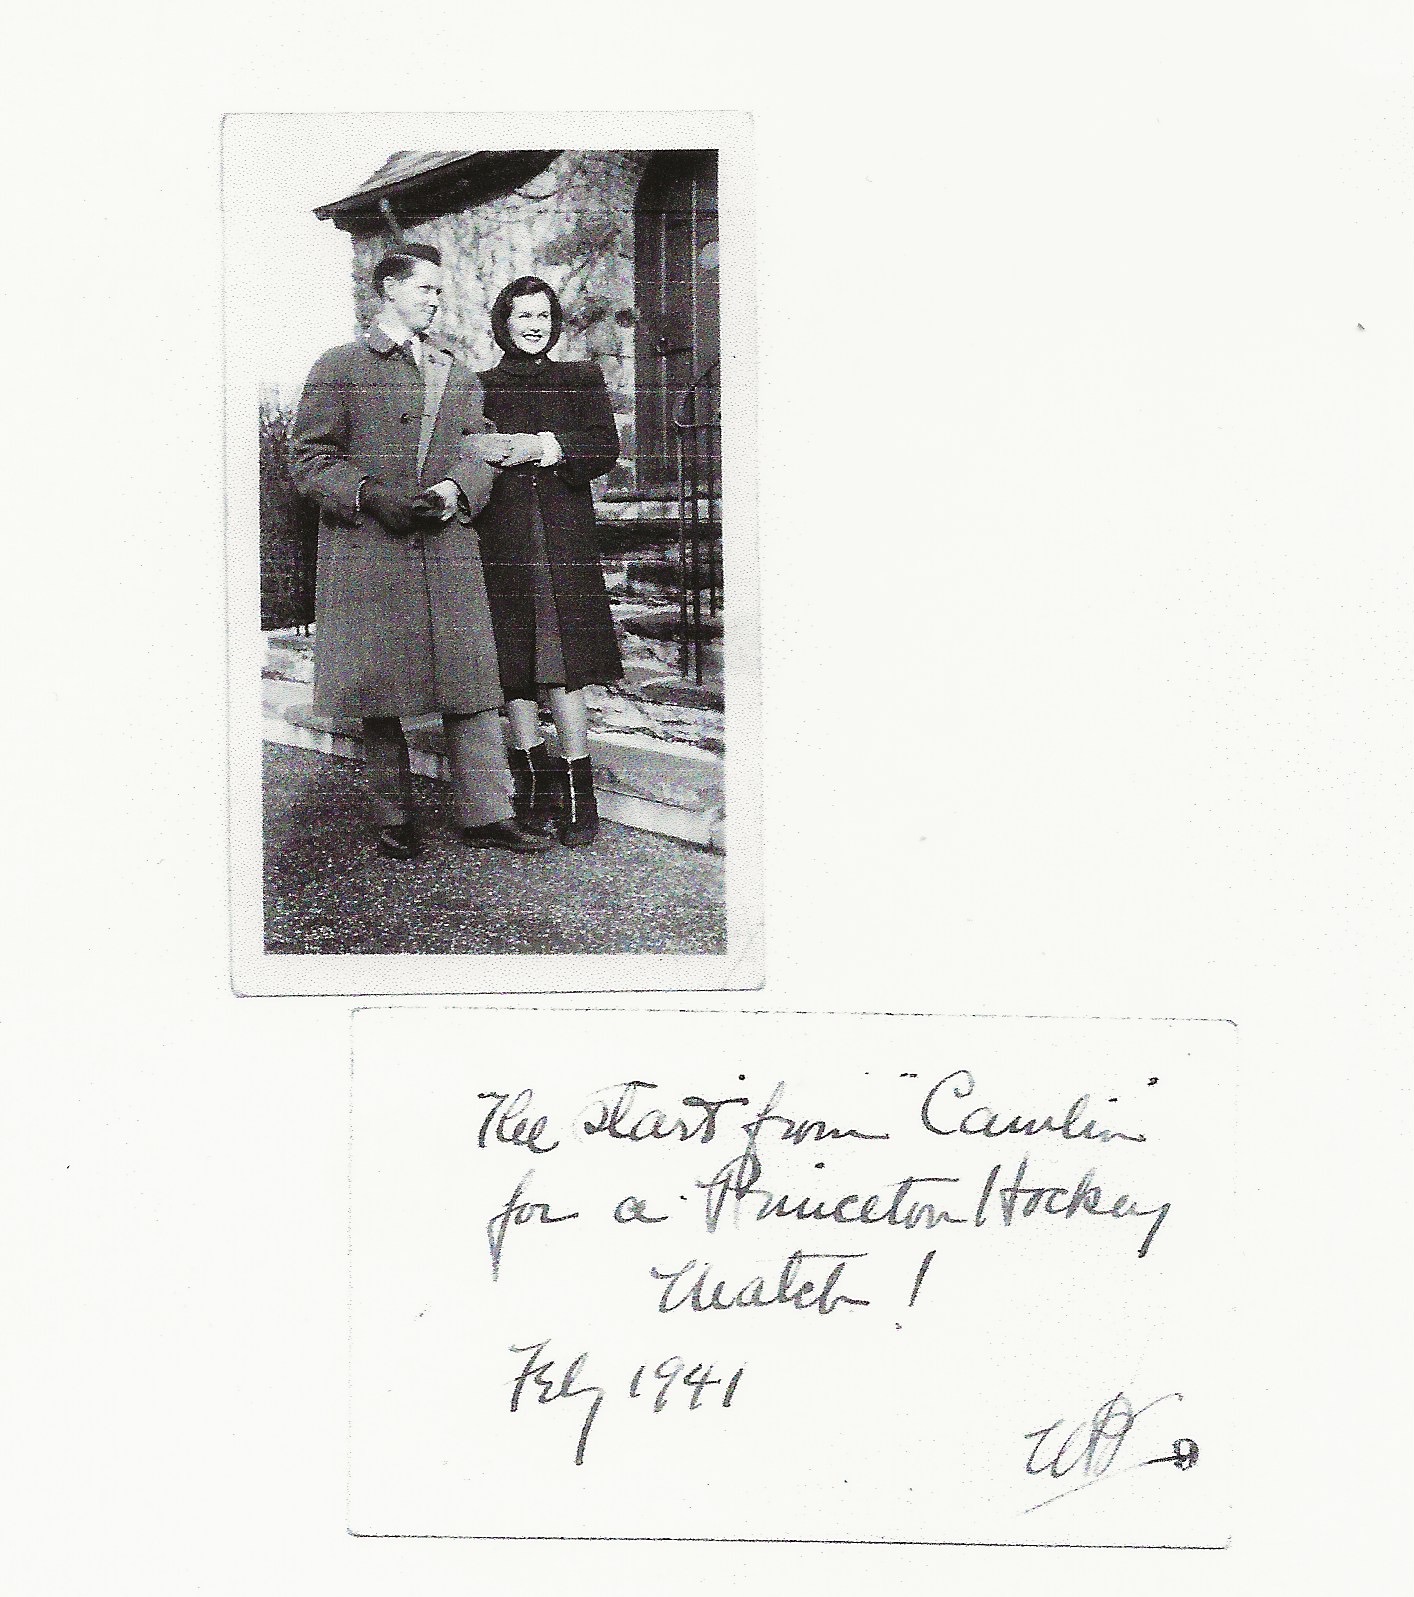 The start from
for a Princeton Hockey
Match!
Feby 1941